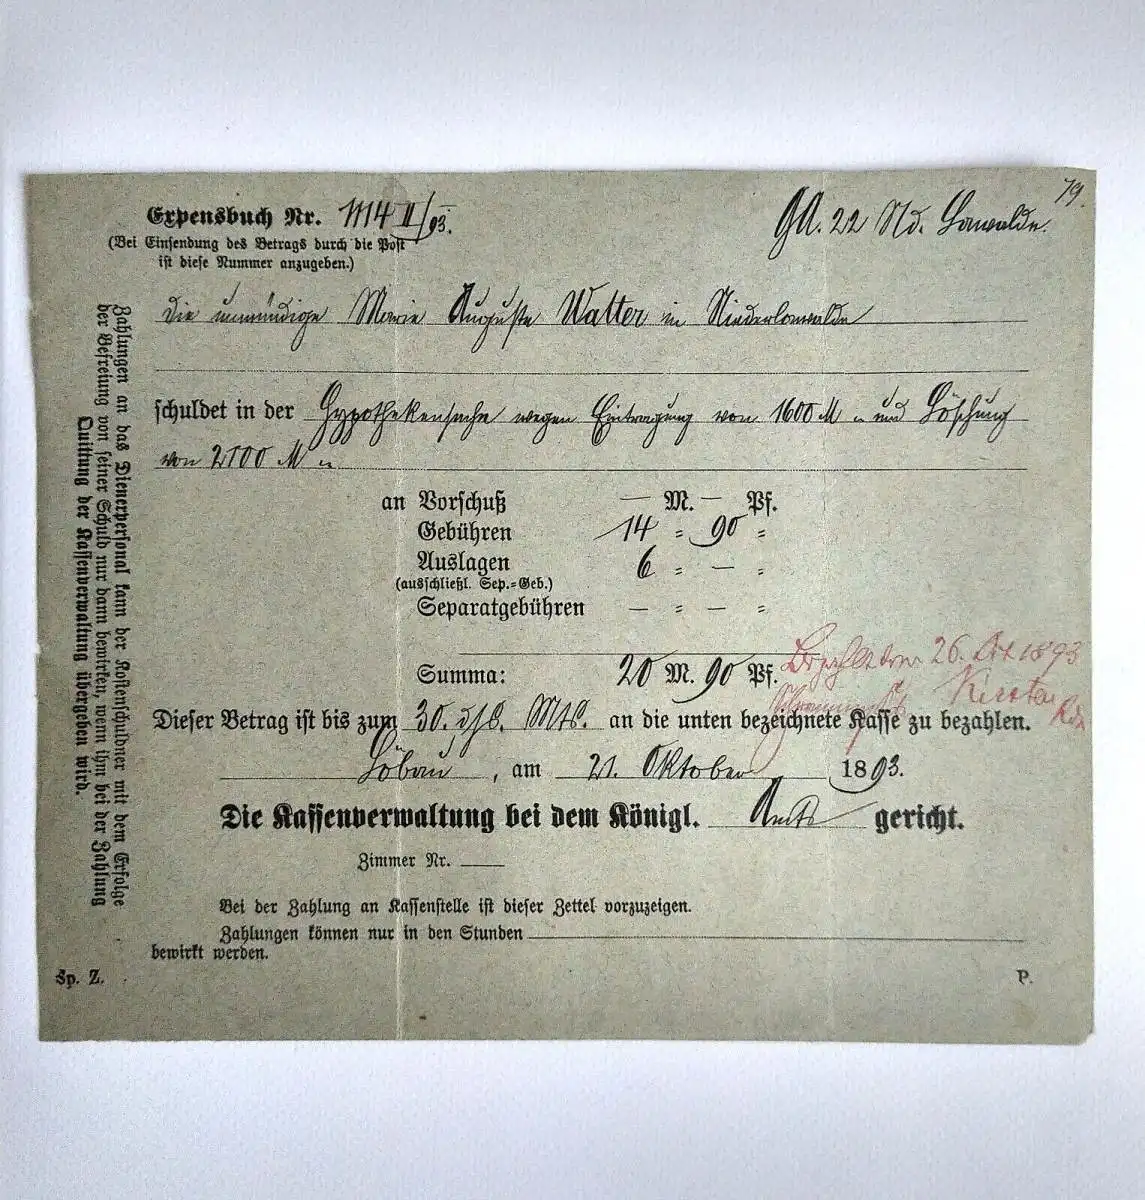 79.
Expensbuch Nr. 1114 II/93.
GA. 22 Nd. Lawalde.
(Bei Einsendung des Betrags durch die Post
ist diese Nummer anzugeben.)
Die unmündige Marie Auguste Walter in Niederlawalde
schuldet in der Hypothekensache wegen Eintragung von 1600 M und Löschung
von 2100 M
an Vorschuß — M. — Pf.
Gebühren 14 = 90 =
Auslagen 6 = — =
(ausschließl. Sep.=Geb.)
Separatgebühren — = — =
Summa: 20 M. 90 Pf.
Bezahlt den 26. Okt 1893
Dieser Betrag ist bis zum 30. dss. Mts. an die unten bezeichnete Kasse zu bezahlen.
Löbau, am 21. Oktober 1893.
Die Kassenverwaltung bei dem Königl. Amts gericht.
Zimmer Nr.
Bei der Zahlung an Kassenstelle ist dieser Zettel vorzuzeigen.
Zahlungen können nur in den Stunden
bewirkt werden.
Sp. Z.
P.
Zahlungen an das Dienerpersonal kann der Kostenschuldner mit dem Erfolge
der Befreiung von seiner Schuld nur dann bewirken, wenn ihm bei der Zahlung
Quittung der Kassenverwaltung übergeben wird.